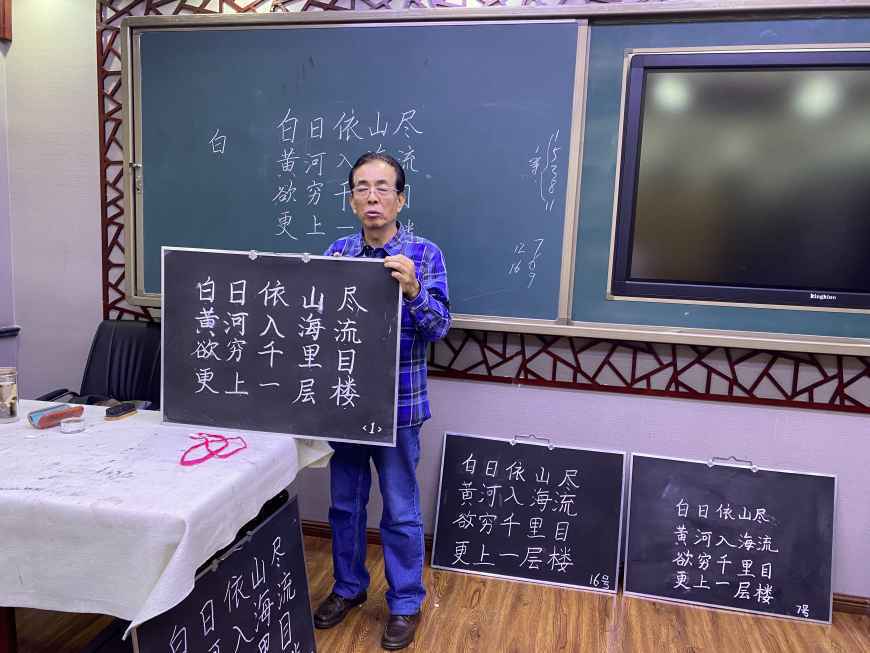 白
白日依山尽
黄河入流
欲穷千目
更上一
12 7
16
9
白日依山尽
黄河入海流
欲穷千里目
更上一层楼
<1>
白日依山尽
黄河入海流
欲穷千里目
更上一层楼
16号
白日依山尽
黄河入海流
欲穷千里目
更上一层楼
7号
白日依山尽
入海流
目